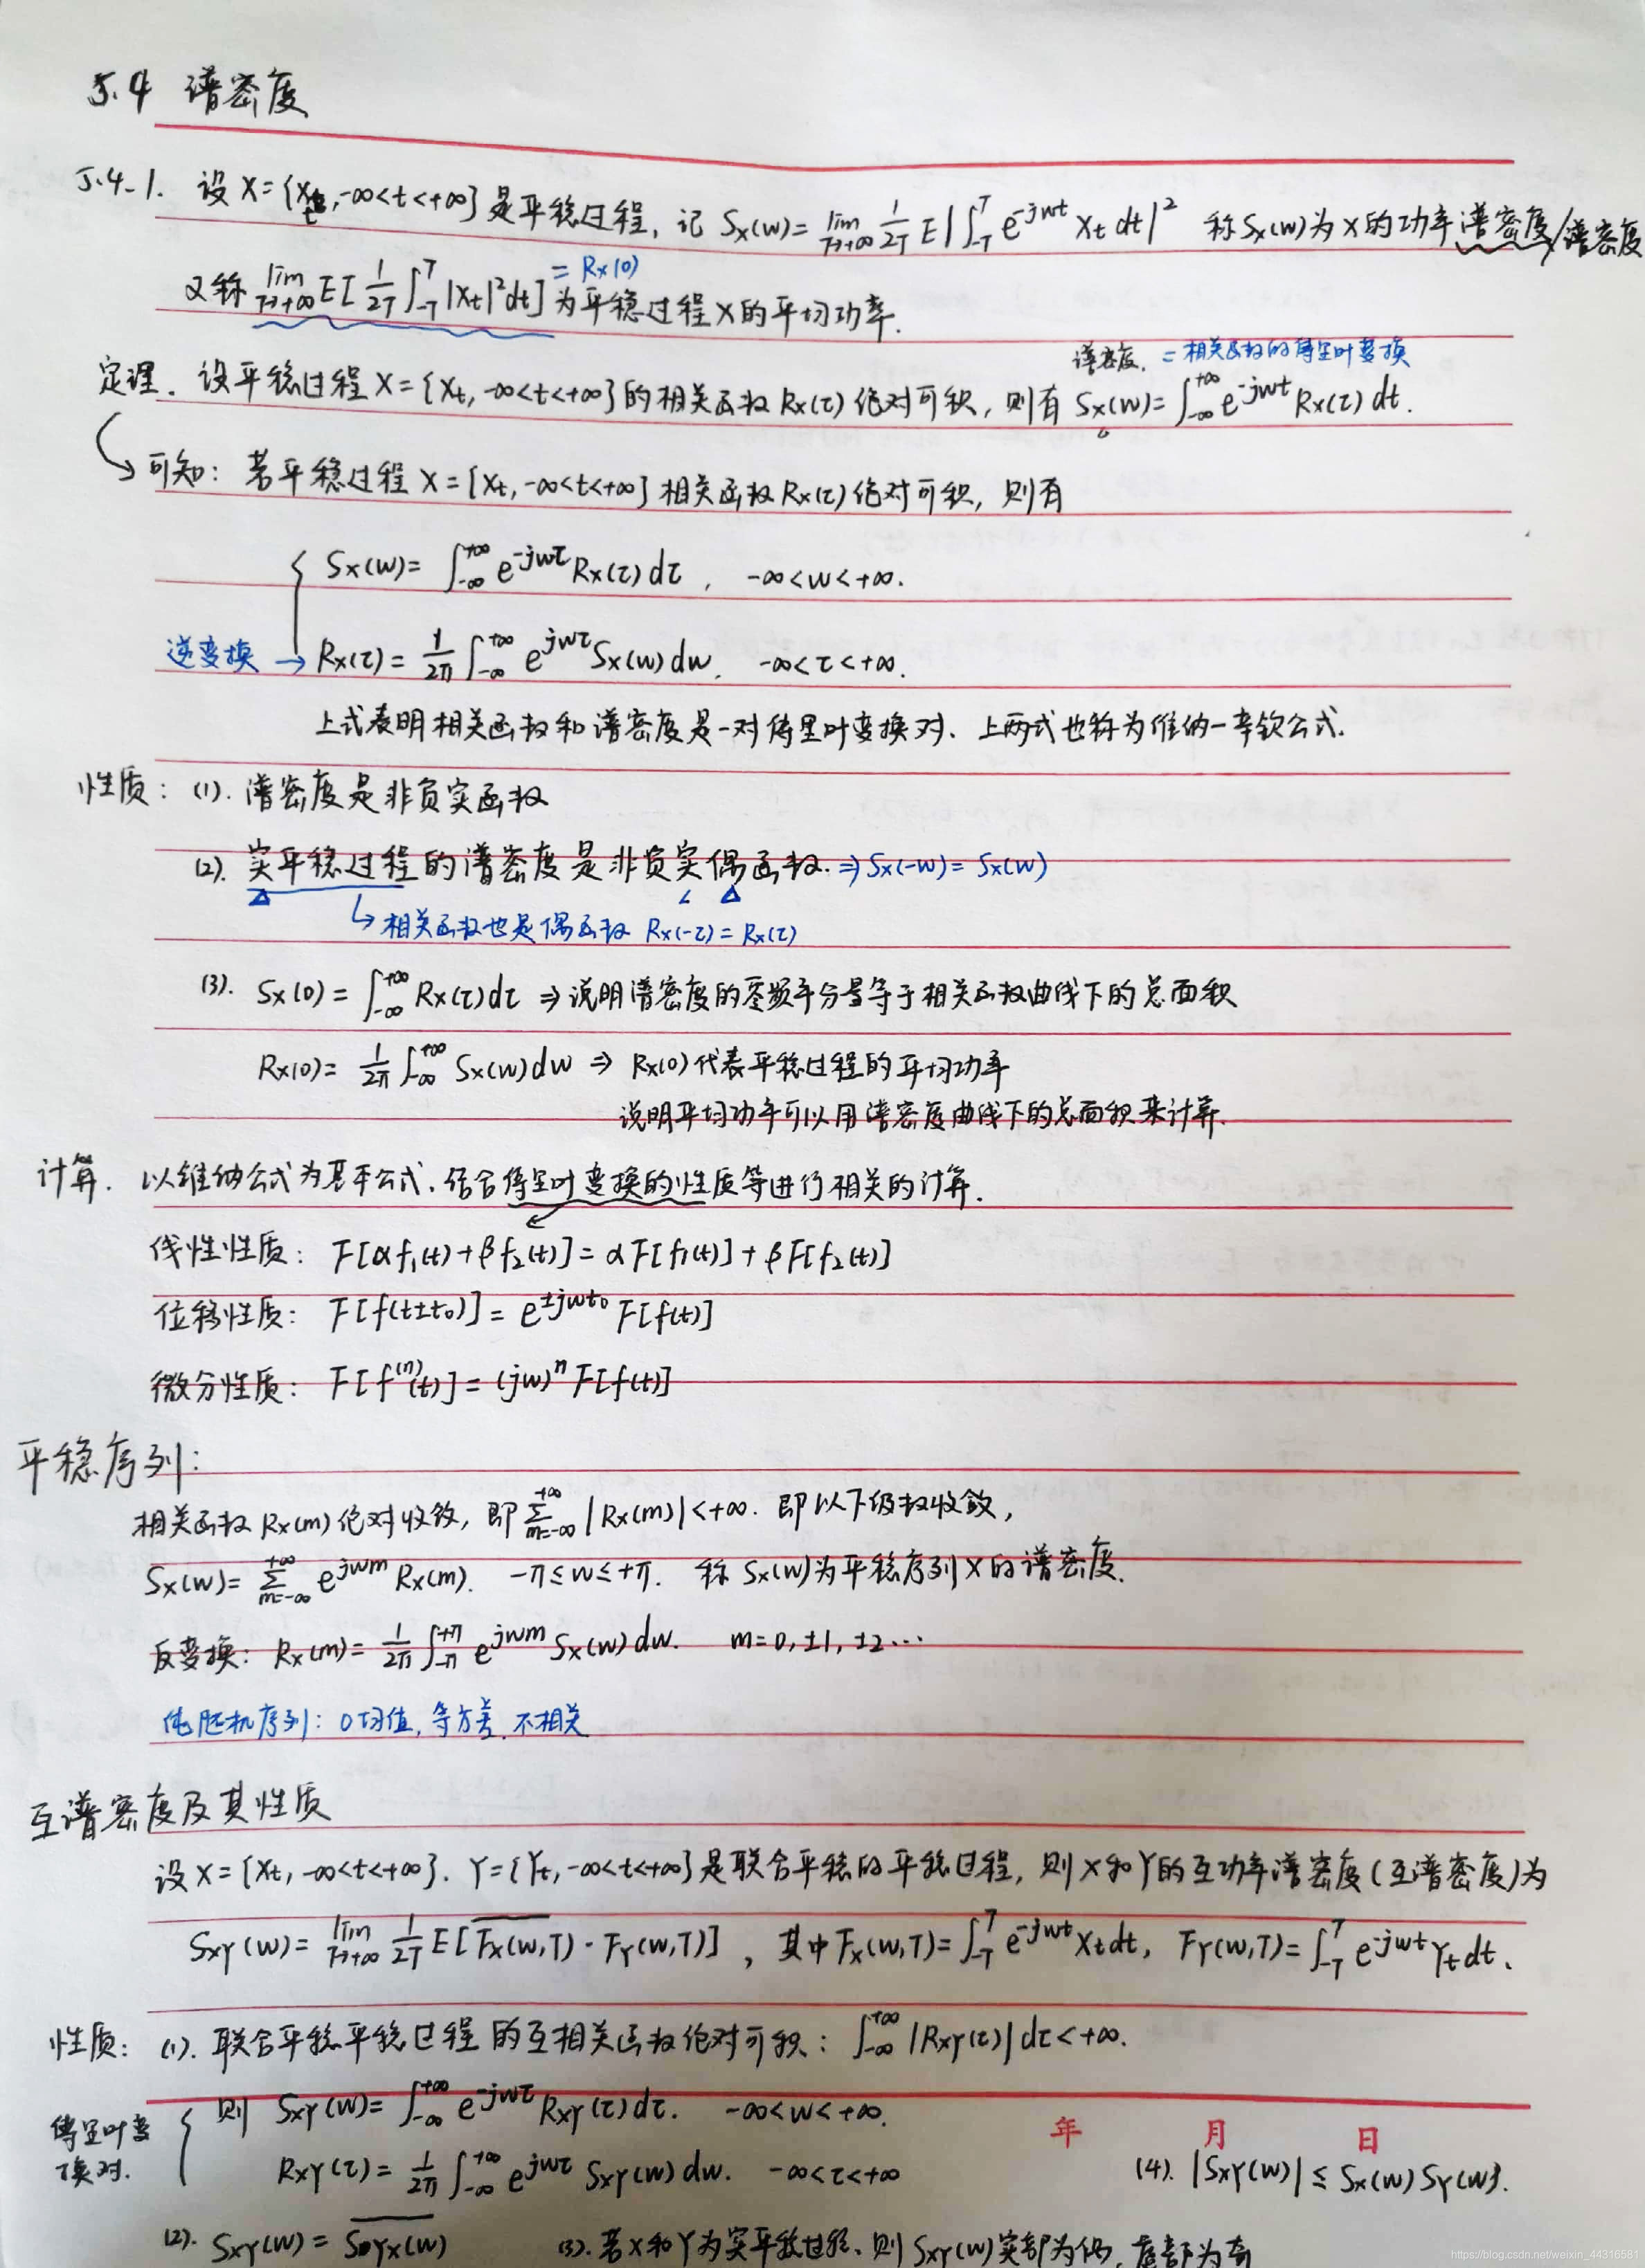 5.4 谱密度
5.4-1. 设 X={Xt, -∞<t<+∞}是平稳过程, 记 Sx(w)= lim T→+∞ 1/2T E|∫_{-T}^{T} e^{-jwt} Xt dt|² 称Sx(w)为X的功率谱密度/谱密度
又称 lim T→+∞ E[1/2T ∫_{-T}^{T} |Xt|²dt] =Rx(0) 为平稳过程X的平均功率.
谱密度. =相关函数的傅里叶变换
定理. 设平稳过程 X={Xt, -∞<t<+∞}的相关函数 Rx(τ) 绝对可积, 则有 Sx(w)=∫_{-∞}^{+∞} e^{-jwt} Rx(τ) dt.
可知: 若平稳过程 X={Xt, -∞<t<+∞} 相关函数 Rx(τ)绝对可积, 则有
Sx(w)= ∫_{-∞}^{+∞} e^{-jwτ} Rx(τ) dτ , -∞<w<+∞.
逆变换 → Rx(τ)= 1/2π ∫_{-∞}^{+∞} e^{jwτ} Sx(w) dw. -∞<τ<+∞.
上式表明相关函数和谱密度是一对傅里叶变换对. 上两式也称为维纳一辛钦公式.
性质: (1). 谱密度是非负实函数
(2). 实平稳过程的谱密度是非负实偶函数. ⇒ Sx(-w)= Sx(w)
↳ 相关函数也是偶函数 Rx(-τ)= Rx(τ)
(3). Sx(0)= ∫_{-∞}^{+∞} Rx(τ)dτ ⇒ 说明谱密度的零频率分量等于相关函数曲线下的总面积
Rx(0)= 1/2π ∫_{-∞}^{+∞} Sx(w)dw ⇒ Rx(0)代表平稳过程的平均功率
说明平均功率可以用谱密度曲线下的总面积来计算.
计算. 以维纳公式为基本公式, 结合傅里叶变换的性质等进行相关的计算.
线性性质: F[αf₁(t)+βf₂(t)]= αF[f₁(t)]+βF[f₂(t)]
位移性质: F[f(t±t₀)]= e^{±jwt₀} F[f(t)]
微分性质: F[f^{(n)}(t)]= (jw)^n F[f(t)]
平稳序列:
相关函数 Rx(m) 绝对收敛, 即 Σ_{m=-∞}^{+∞} |Rx(m)|<+∞. 即以下级数收敛,
Sx(w)= Σ_{m=-∞}^{+∞} e^{jwm} Rx(m). -π≤w≤+π. 称 Sx(w)为平稳序列X的谱密度.
反变换: Rx(m)= 1/2π ∫_{-π}^{+π} e^{jwm} Sx(w) dw. m=0, ±1, ±2…
纯随机序列: 0均值, 等方差, 不相关
互谱密度及其性质
设 X={Xt, -∞<t<+∞}. Y={Yt, -∞<t<+∞}是联合平稳的平稳过程, 则X和Y的互功率谱密度(互谱密度)为
SXY(w)= lim T→+∞ 1/2T E[\overline{FX(w,T)}·FY(w,T)] , 其中FX(w,T)=∫_{-T}^{T} e^{-jwt}Xtdt, FY(w,T)=∫_{-T}^{T} e^{-jwt}Ytdt.
性质: (1). 联合平稳平稳过程的互相关函数绝对可积: ∫_{-∞}^{+∞} |RXY(τ)| dτ<+∞.
则 SXY(w)= ∫_{-∞}^{+∞} e^{-jwτ} RXY(τ)dτ. -∞<w<+∞.
年 月 日
傅里叶变换对.
RXY(τ)= 1/2π ∫_{-∞}^{+∞} e^{jwτ} SXY(w) dw. -∞<τ<+∞ (4). |SXY(w)| ≤ Sx(w) SY(w).
(2). SXY(w)= \overline{SYX(w)} (3). 若X和Y为实平稳过程, 则 SXY(w)实部为偶, 虚部为奇
https://blog.csdn.net/weixin_44316581